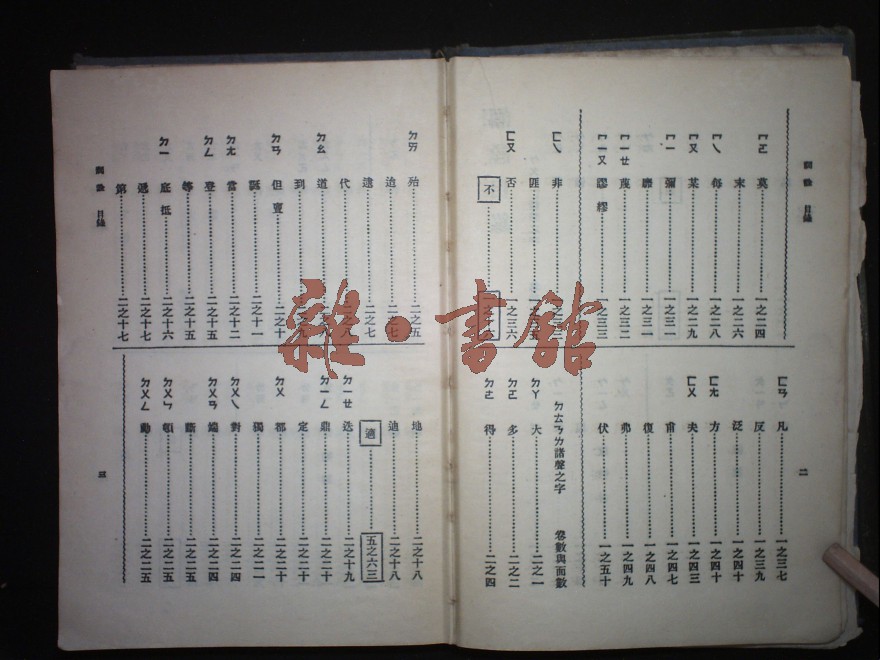 詞詮 目錄
ㄇㄛ 莫 一之二四
末 一之二六
ㄇㄟ 每 一之二八
ㄇㄡ 某 一之二九
ㄇㄧ 彌 一之三一
靡 一之三一
ㄇㄧㄝ 蔑 一之三二
ㄇㄧㄡ 謬繆 一之三三
ㄈㄟ 非
匪
ㄈㄡ 否 一之三六
不
二
ㄈㄢ 凡 一之三七
反 一之三九
泛 一之四十
ㄈㄤ 方 一之四十
ㄈㄨ 夫 一之四三
甫 一之四七
復 一之四八
弗 一之四九
伏 一之五十
ㄉㄊㄋㄌ諸聲之字 卷數與面數
ㄉㄚ 大 二之一
ㄉㄛ 多 二之二
ㄉㄜ 得 二之四
詞詮 目錄
ㄉㄞ 殆 二之五
迨 二之七
逮 二之七
代
ㄉㄠ 道
到
ㄉㄢ 但亶 二之十
誕 二之十一
ㄉㄤ 當 二之十二
ㄉㄥ 登 二之十五
等 二之十五
ㄉㄧ 底抵 二之十六
遞 二之十七
第 二之十七
三
地 二之十八
迪 二之十八
適 五之六三
ㄉㄧㄝ 迭 二之十九
ㄉㄧㄥ 鼎 二之二十
定 二之二十
ㄉㄨ 都 二之二十
獨 二之二一
ㄉㄨㄟ 對 二之二四
ㄉㄨㄢ 端 二之二四
斷 二之二五
ㄉㄨㄣ 頓 二之二五
ㄉㄨㄥ 動 二之二五
雜·書館